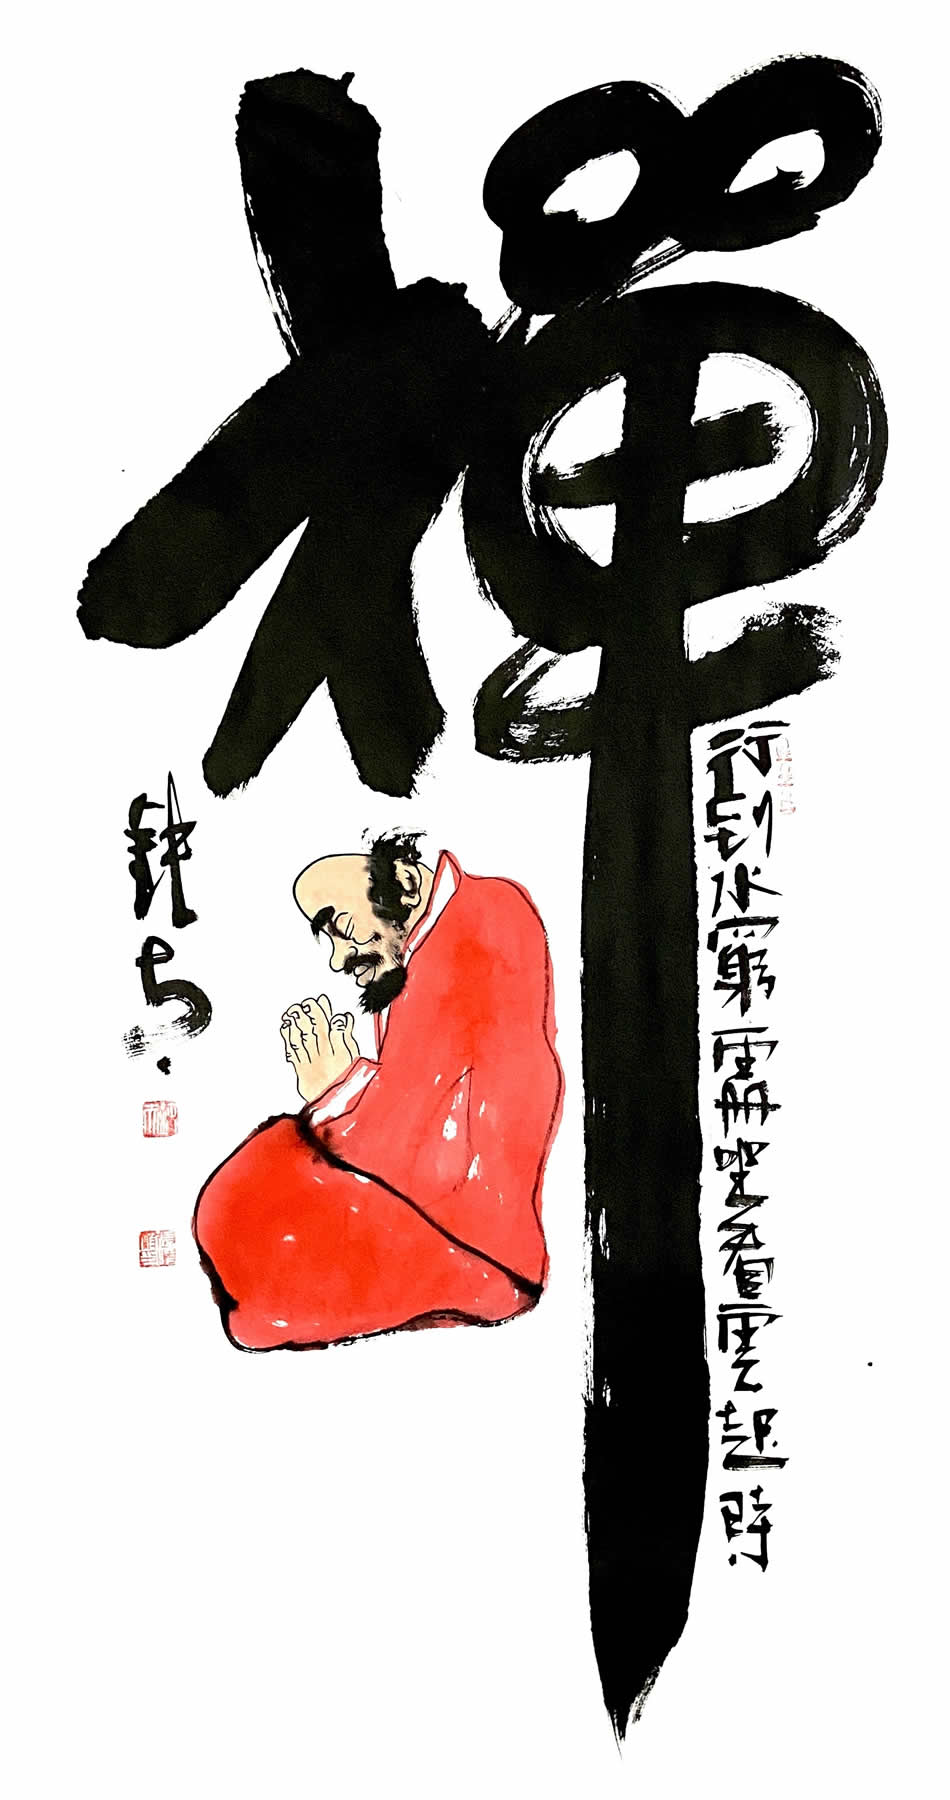 禪
行到水窮處坐看雲起時